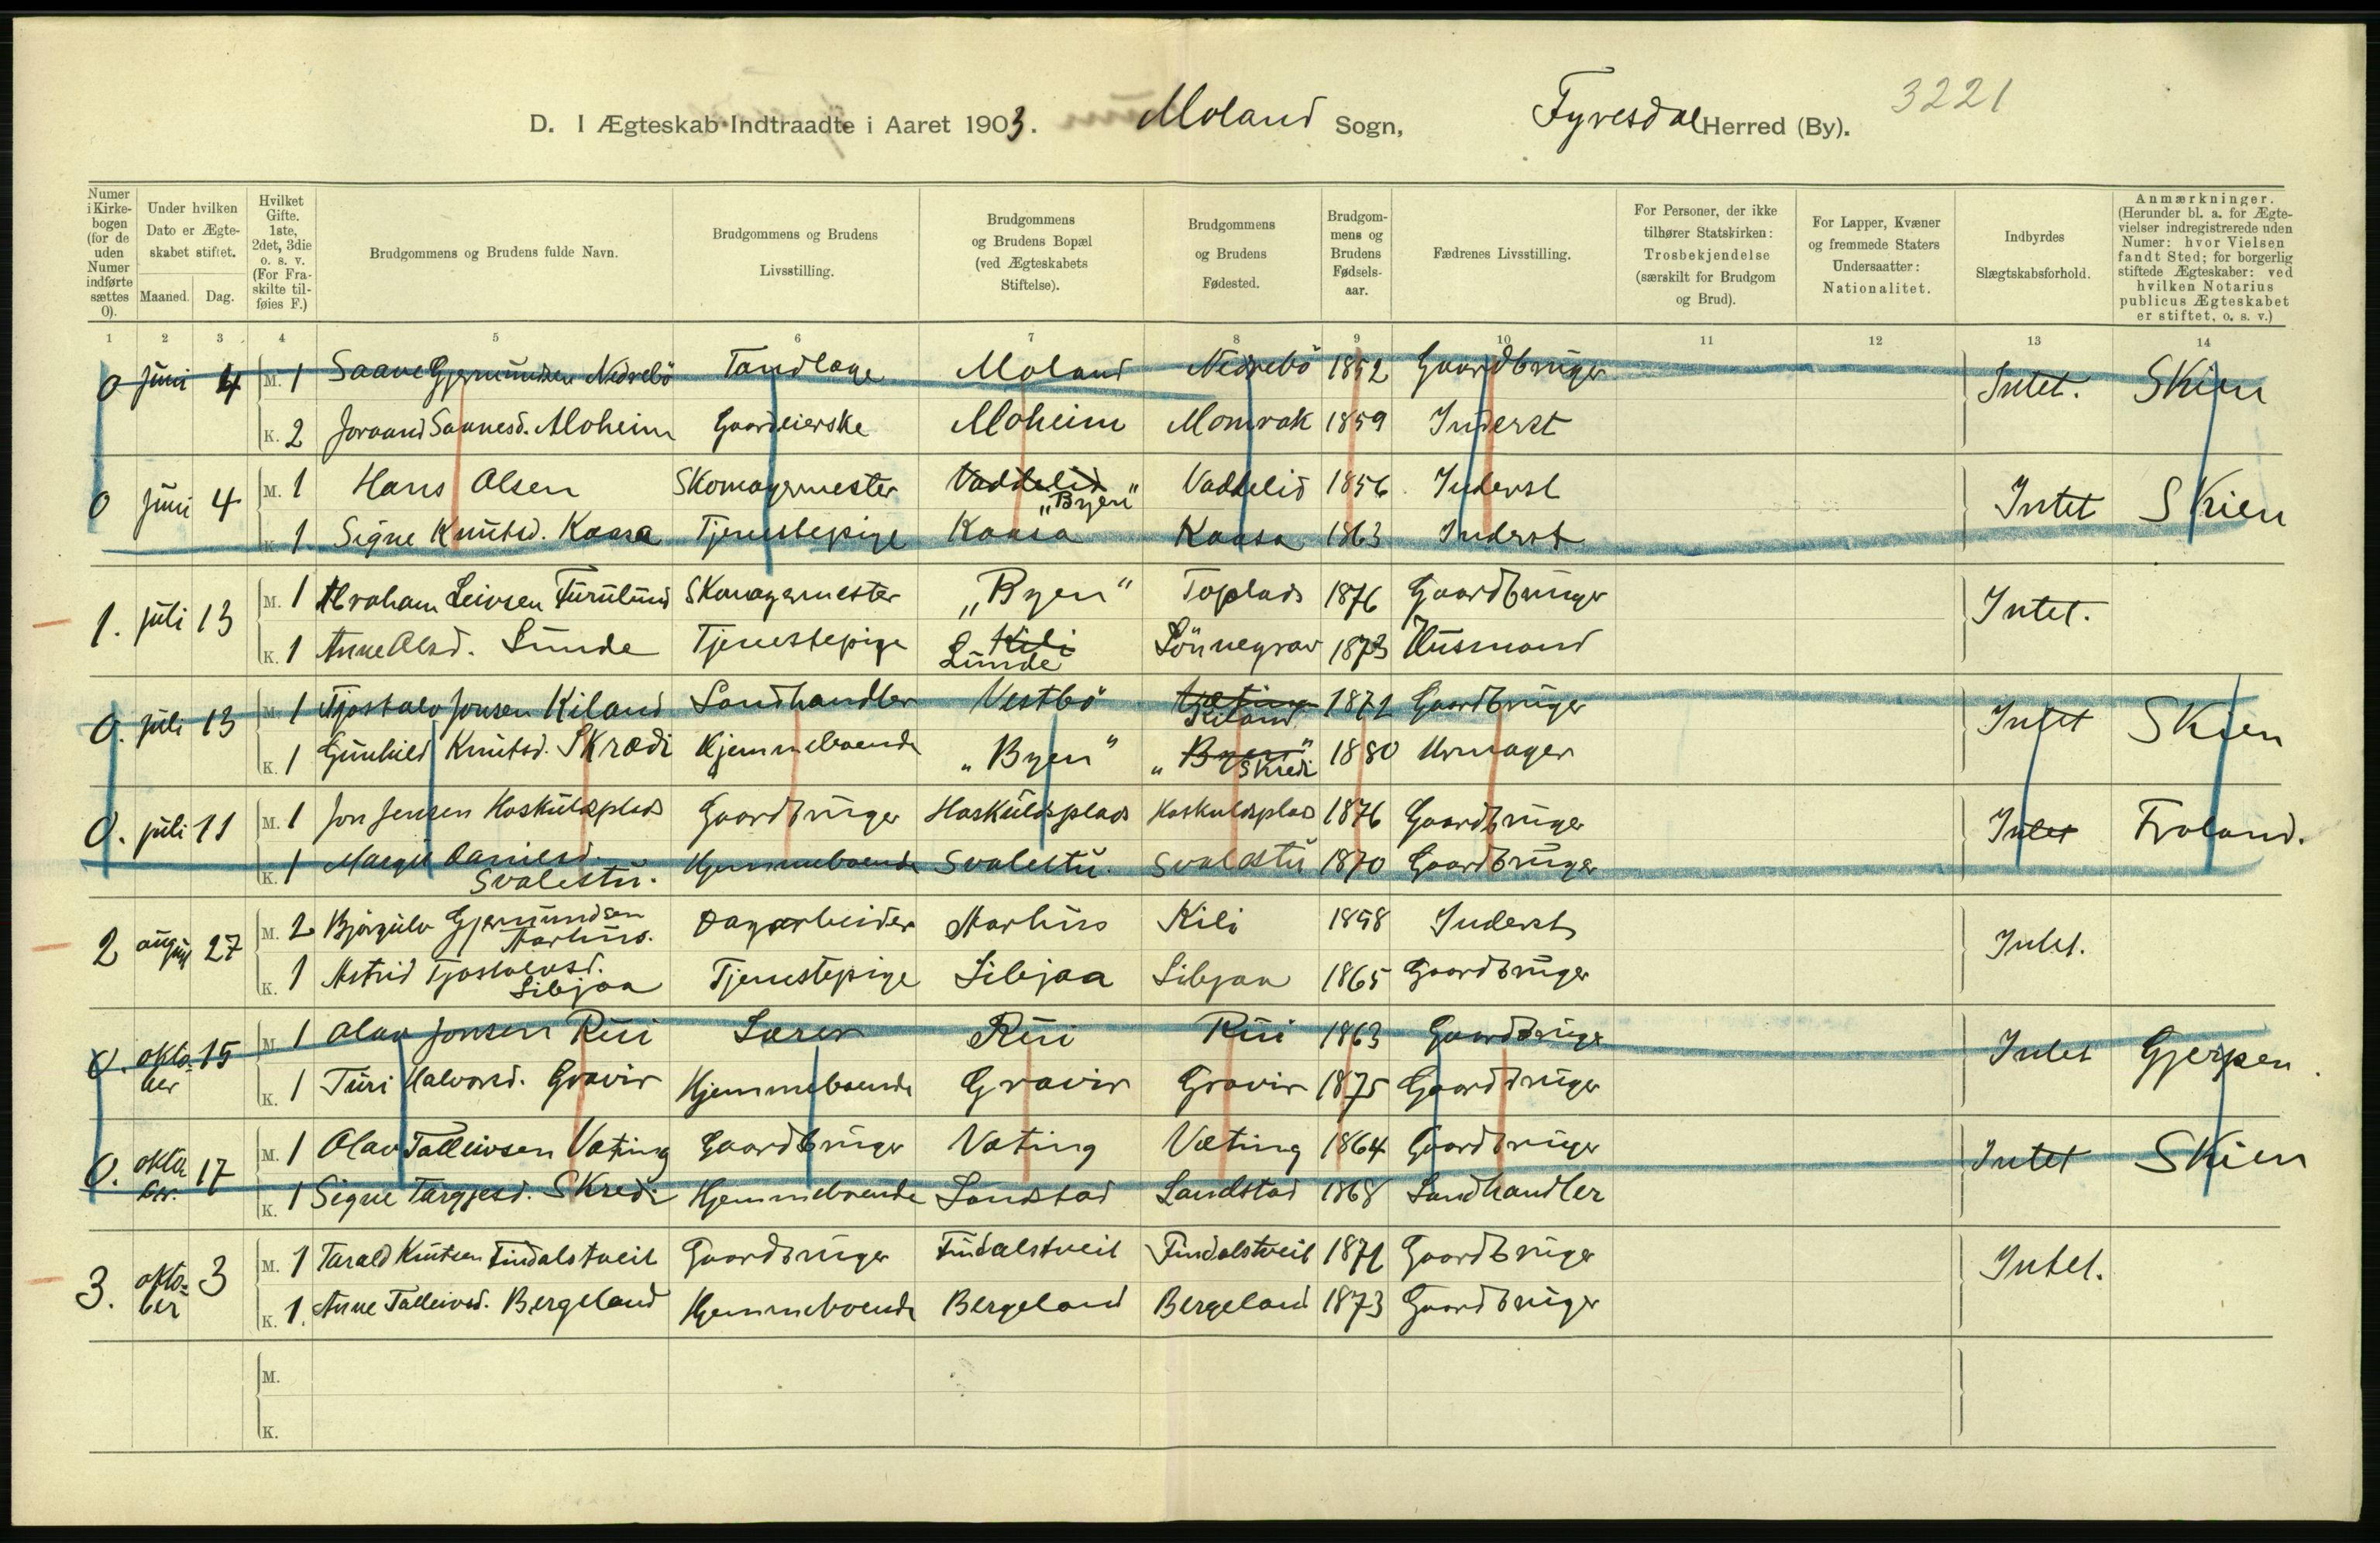 3221
D. I Ægteskab Indtraadte i Aaret 1903. Moland Sogn, Fyresdal Herred (By).
Numer i Kirkebogen (for de uden Numer indførte sættes 0).
Under hvilken Dato er Ægteskabet stiftet.
Maaned. Dag.
Hvilket Gifte. 1ste, 2det, 3die o. s. v. (For Fraskilte tilføies F.)
Brudgommens og Brudens fulde Navn.
Brudgommens og Brudens Livsstilling.
Brudgommens og Brudens Bopæl (ved Ægteskabets Stiftelse).
Brudgommens og Brudens Fødested.
Brudgommens og Brudens Fødselsaar.
Fædrenes Livsstilling.
For Personer, der ikke tilhører Statskirken: Trosbekjendelse (særskilt for Brudgom og Brud).
For Lapper, Kvæner og fremmede Staters Undersaatter: Nationalitet.
Indbyrdes Slægtskabsforhold.
Anmærkninger. (Herunder bl. a. for Ægtevielser indregistrerede uden Numer: hvor Vielsen fandt Sted; for borgerlig stiftede Ægteskaber: ved hvilken Notarius publicus Ægteskabet er stiftet, o. s. v.)
1 2 3 4 5 6 7 8 9 10 11 12 13 14
0 juni 4 M. 1 Saave Gjermundsen Nedrebö Tandlæge Moland Nedrebö 1852 Gaardbruger Intet. Skien
K. 2 Joraand Saavesd. Moheim Gaardeierske Moheim Momrak 1859 Inderst
0 juni 4 M. 1 Hans Olsen Skomagermester Vaddelid „Byen“ Vaddelid 1856 Inderst Intet Skien
K. 1. Signe Knutsd. Kaasa Tjenestepige Kaasa Kaasa 1863 Inderst
1. juli 13 M. 1 Abraham Leivsen Furulund Skomagermester „Byen“ Toplads 1876 Gaardbruger Intet.
K. 1 Anne Olsd. Lunde Tjenestepige Kili Lunde Lönnegrav 1873 Husmand
0. juli 13 M. 1 Tjostolv Jonsen Kiland Landhandler Vestbö Væting Kiland 1872 Gaardbruger Intet Skien
K. 1 Gunhild Knutsd. Skrædi Hjemmeboende „Byen“ „Byen“ Skredi 1880 Urmager
0. juli 11 M. 1 Jon Jensen Haskuldsplads Gaardbruger Haskuldsplads Haskuldsplads 1876 Gaardbruger Intet Froland.
K. 1 Margit Danielsd. Svalestu. Hjemmeboende Svalestu. Svalestu 1870 Gaardbruger
2 august 27 M. 2 Björgulv Gjermundsen Aarhus. Dagarbeider Aarhus Kili 1858 Inderst Intet.
K. 1 Astrid Tjostolvsd. Libjaa Tjenestepige Libjaa Libjaa 1865 Gaardbruger
0. oktober 15 M. 1 Olav Jonsen Rui Lærer Rui Rui 1863 Gaardbruger Intet Gjerpen.
K. 1 Turi Halvorsd. Gravir Hjemmeboende Gravir Gravir 1875 Gaardbruger
0. oktober. 17 M. 1 Olav Talleivsen Væting Gaardbruger Væting Væting 1864 Gaardbruger Intet Skien
K. 1 Signe Targjesd. Skredi Hjemmeboende Landstad Landstad 1868 Landhandler
3. oktober 3 M. 1 Tarald Knutsen Findalstveit Gaardbruger Findalstveit Findalstveit 1871 Gaardbruger Intet.
K. 1. Anne Talleivsd. Bergeland Hjemmeboende Bergeland Bergeland 1873 Gaardbruger
M.
K.